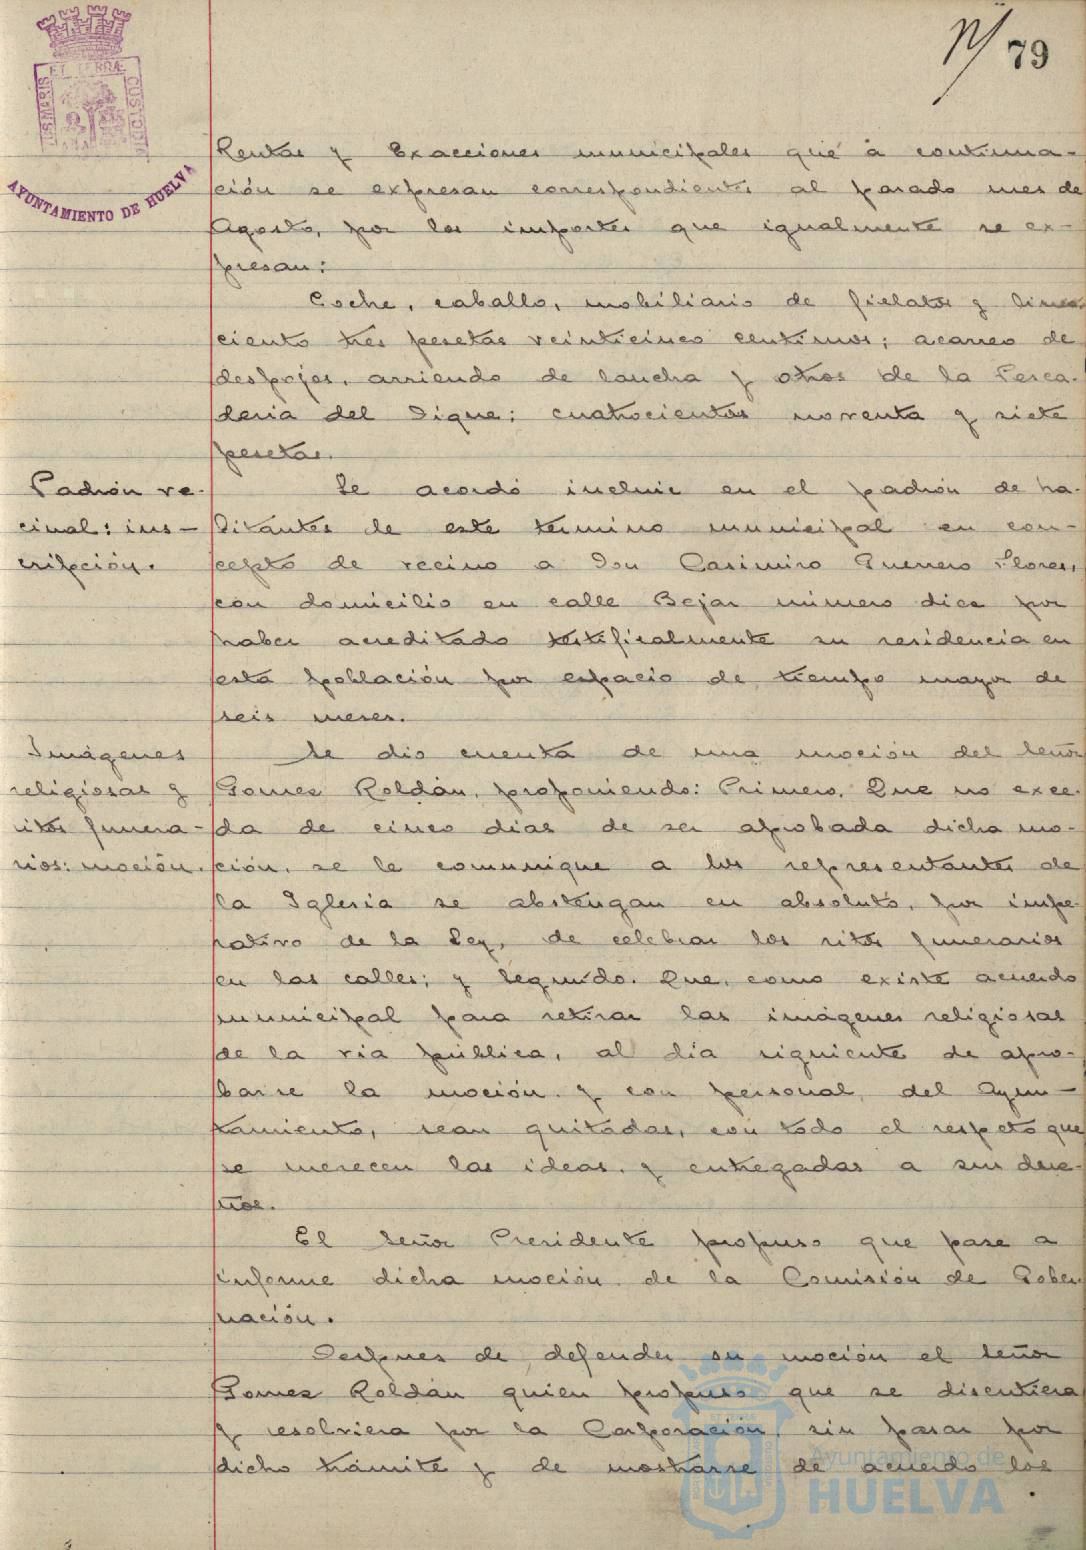 79
ET TERRÆ
AYUNTAMIENTO DE HUELVA
Rentas y Exacciones municipales que à continua-
ción se expresan correspondientes al pasado mes de
Agosto, por los importes que igualmente se ex-
presan:
Coche, caballo, mobiliario de fielatos y
ciento tres pesetas veinticinco centimos; acarreo de
despojos, arriendo de lancha y otros de la Pesca-
deria del Dique; cuatrocientas noventa y siete
pesetas.
Padrón ve-
cinal: ins-
cripción.
Se acordó incluir en el padrón de ha-
bitantes de este término municipal en con-
cepto de vecino a Don Casimiro Guerrero Flores,
con domicilio en calle Bejar número diez por
haber acreditado testificalmente su residencia en
esta población por espacio de tiempo mayor de
seis meses.
Imágenes
religiosas y
ritos funera-
rios: moción.
Se dio cuenta de una moción del Señor
Gomez Roldán, proponiendo: Primero. Que no exce-
da de cinco dias de ser aprobada dicha mo-
ción, se le comunique a los representantes de
la Iglesia se abstengan en absoluto, por impe-
rativo de la Ley, de celebrar los ritos funerarios
en las calles; y Segundo. Que, como existe acuerdo
municipal para retirar las imágenes religiosas
de la via pública, al dia siguiente de apro-
barse la moción y con personal del Ayun-
tamiento, sean quitadas, con todo el respeto que
se merecen las ideas, y entregadas a sus due-
ños.
El Señor Presidente propuso que pase a
informe dicha moción de la Comisión de Gober-
nación.
Despues de defender su moción el Señor
Gomez Roldán quien propuso que se discutiera
y resolviera por la Corporación, sin pasar por
dicho trámite y de mostrarse de acuerdo los
Ayuntamiento de
HUELVA